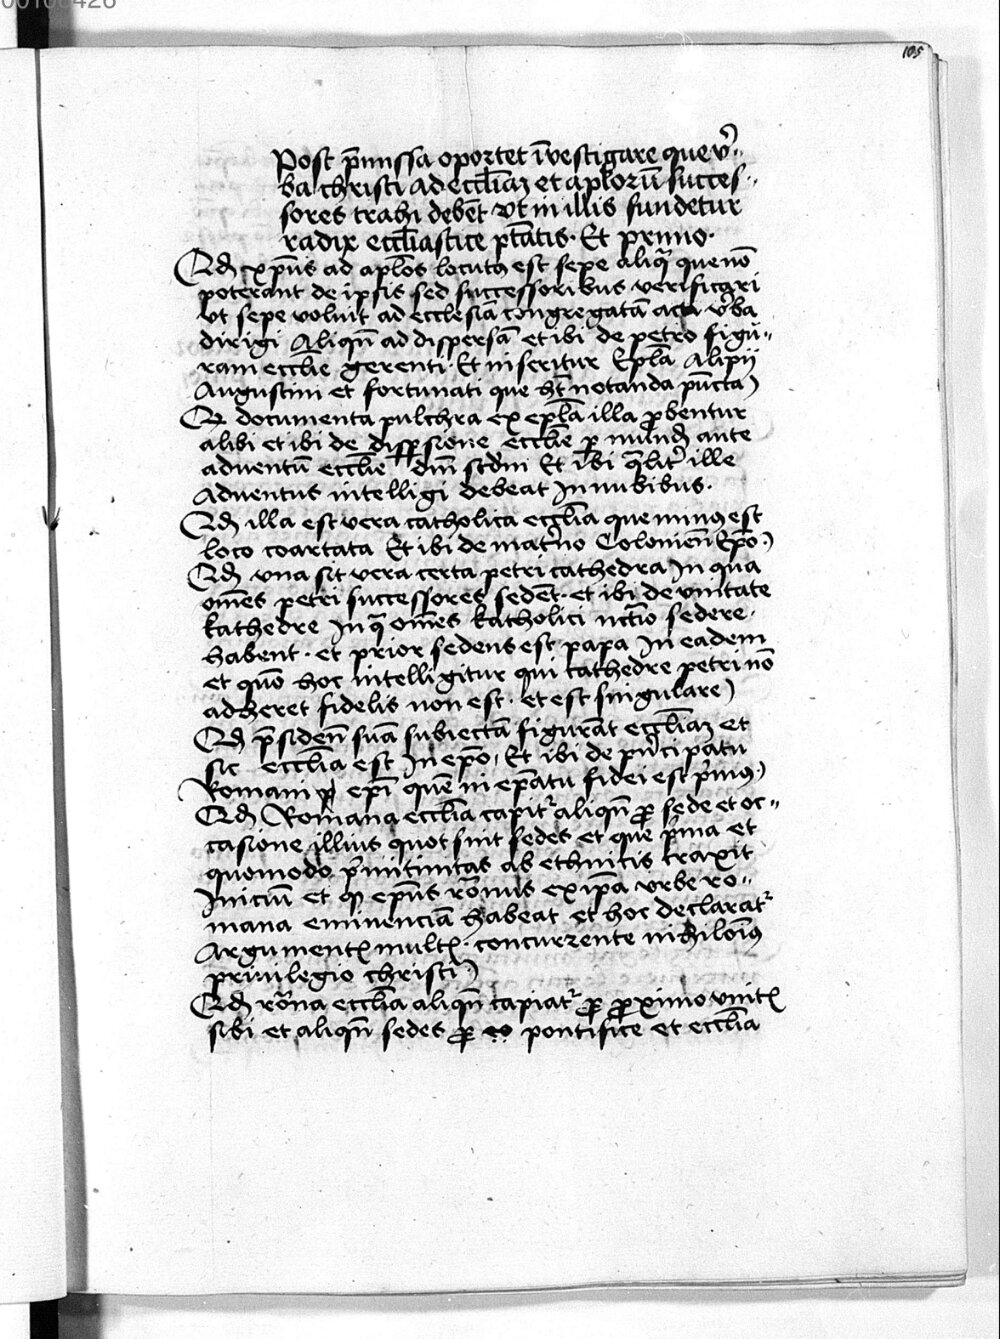 00100426
105
Post p̄missa oportet īvestigare que v̓⸗
ba christi ad eccl̄iaꝫ et apl̓oꝝ succes⸗
sores trahi debēt vt in illis fundetur
radix eccl̄iastice pt̄atis · Et primo ·
Qd̓ xp̄us ad apl̄os locutꝰ est sepe aliqͣ que nō
poterant de ipsis sed successoribus verificari
vt sepe voluit ad ecclesiā congregatā acta v̓ba
dirigi Aliqn̄ ad dispersā et ibi de petro figu⸗
ram eccl̄ie gerenti · Et inseritur Epl̄a Alipij
Augustini et fortunati que hn̄t notanda pūcta)
Qꝫ documenta pulchra ex epl̄a illa ꝓbentur
alibi et ibi de disꝑsione eccl̄ie ꝑ mundū ante
aduentū eccl̄ie dn̄i scd̓m Et ibi qͣlit̓ ille
Aduentus intelligi debeat In nubibus ·
Qd̓ illa est vera catholica eccl̄ia que minꝰ est
loco coartata Et ibi de mat̓no Colonien̄ Ep̄o)
Qd̓ vna sit vera certa petri cathedra In qua
om̄es petri successores sedēt · et ibi de vnitate
kathedre In qͣ om̄es katholici nc̄tio sedere
habent · et prior sedens est papa In eadem
et quō hoc intelligitur qui cathedre petri nō
adheret fidelis non est · et est singulare)
Qd̓ p̄siden̄ suā subiectā figurāt eccl̄iaꝫ et
sic eccl̄ia est In ep̄o, Et ibi de p̓ncipatu
Romani ep̄i quē in ep̄atu fidei est p̓mus)
Qd̓ Romana eccl̄ia capit̓ aliqn̄ ꝓ sede et oc⸗
casione illius quot sint sedes et que p̓ma et
quomodo p̓mitinitas ab ethnicis traxit
Iniciū et ꝙ ep̄us rōmus ex ip̄a vrbe ro⸗
mana eminenciā habeat et hoc declarat̓
Argumentꝭ multꝭ · concurrente nihilōiꝰ
priuilegio christi)
Qd̓ rōna eccl̄ia aliqn̄ capiat̓ ꝓ ꝓximo vnitꝭ
sibi et aliqn̄ sedes ꝓ eo pontifice et eccl̄ia